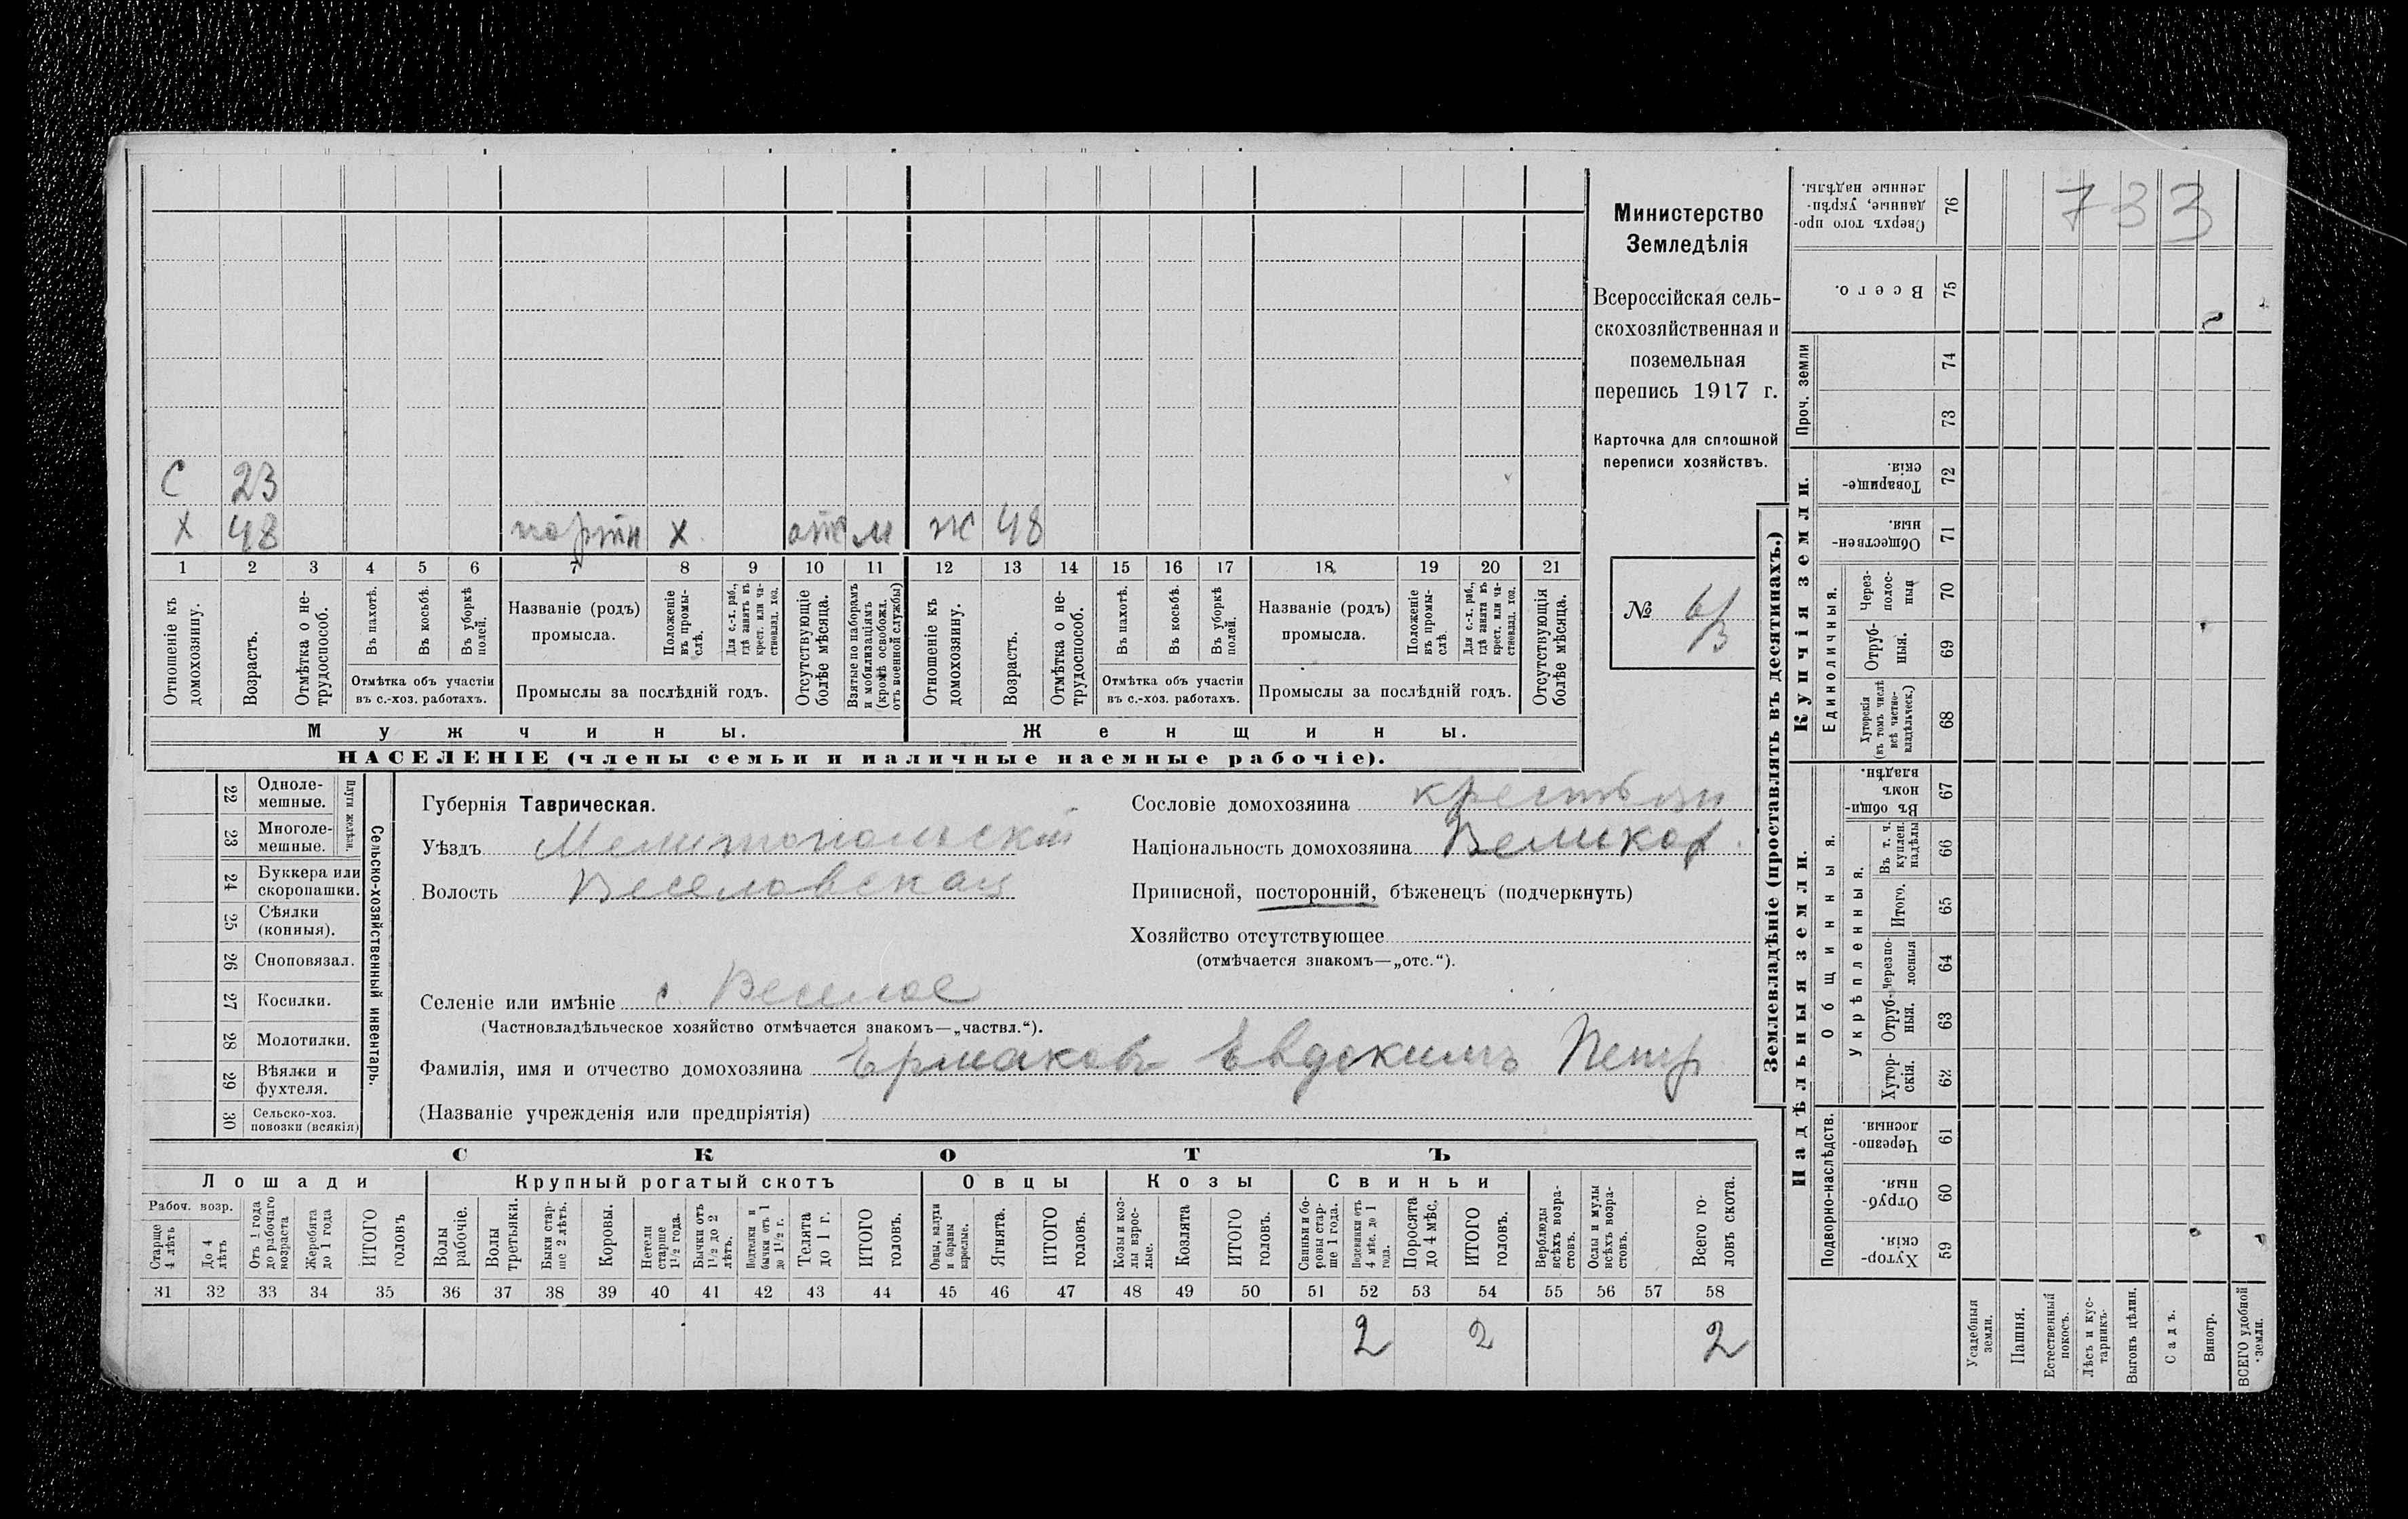 С 23
Х 48 портн Х отс м ж 48
1 2 3 4 5 6 7 8 9 10 11 12 13 14 15 16 17 18 19 20 21
Отношеніе къ домохозяину.
Возрастъ.
Отмѣтка о не-
трудоспособ.
Въ пахотѣ.
Въ косьбѣ.
Въ уборкѣ полей.
Отмѣтка объ участіи
въ с.-хоз. работахъ.
Названіе (родъ)
промысла.
Положеніе
въ промы-
слѣ.
Для с.-х. раб.,
гдѣ занятъ въ
крест. или ча-
стновлад. хоз.
Промыслы за послѣдній годъ.
Отсутствующіе
болѣе мѣсяца.
Взятые по наборамъ
и мобилизаціямъ
(кромѣ освобожд.
отъ военной службы)
Отношеніе къ
домохозяину.
Возрастъ.
Отмѣтка о не-
трудоспособ.
Въ пахотѣ.
Въ косьбѣ.
Въ уборкѣ
полей.
Отмѣтка объ участіи
въ с.-хоз. работахъ.
Названіе (родъ)
промысла.
Положеніе
въ промы-
слѣ.
Для с.-х. раб.,
гдѣ занята въ
крест. или ча-
стновлад. хоз.
Промыслы за послѣдній годъ.
Отсутствующія
болѣе мѣсяца.
Мужчины.
Женщины.
НАСЕЛЕНІЕ (члены семьи и наличные наемные рабочіе).
Министерство
Земледѣлія
Всероссійская сель-
скохозяйственная и
поземельная
перепись 1917 г.
Карточка для сплошной
переписи хозяйствъ.
№ 6/3
22 Одноле-
мешные.
23 Многоле-
мешные.
Плуги желѣзн.
24 Буккера или
скоропашки.
25 Сѣялки
(конныя).
26 Сноповязал.
27 Косилки.
28 Молотилки.
29 Вѣялки и
фухтеля.
30 Сельско-хоз.
повозки (всякія)
Сельско-хозяйственный инвентарь.
Губернія Таврическая.
Уѣздъ Мелитопольскій
Волость Веселовская
Сословіе домохозяина крестьян
Національность домохозяина Великор.
Приписной, посторонній, бѣженецъ (подчеркнуть)
Хозяйство отсутствующее
(отмѣчается знакомъ—„отс.“).
Селеніе или имѣніе с. Веселое
(Частновладѣльческое хозяйство отмѣчается знакомъ—„частвл.“).
Фамилія, имя и отчество домохозяина Ермаковъ Евдокимъ Петр
(Названіе учрежденія или предпріятія)
СКОТЪ
Лошади
Рабоч. возр.
Старше
4 лѣтъ
До 4
лѣтъ
Отъ 1 года
до рабочаго
возраста
Жеребята
до 1 года
ИТОГО
головъ
Крупный рогатый скотъ
Волы
рабочіе.
Волы
третьяки.
Быки стар-
ше 2 лѣтъ.
Коровы.
Нетели
старше
1½ года.
Бычки отъ
1½ до 2
лѣтъ.
Подтелки и
бычки отъ 1
до 1½ г.
Телята
до 1 г.
ИТОГО
головъ.
Овцы
Овцы, валухи
и бараны
взрослые.
Ягнята.
ИТОГО
головъ.
Козы
Козы и коз-
лы взрос-
лые.
Козлята
ИТОГО
головъ.
Свиньи
Свиньи и бо-
ровы стар-
ше 1 года.
Подсвинки отъ
4 мѣс. до 1
года.
Поросята
до 4 мѣс.
ИТОГО
головъ.
Верблюды
всѣхъ возра-
стовъ.
Ослы и мулы
всѣхъ возра-
стовъ.
Всего го-
ловъ скота.
31 32 33 34 35 36 37 38 39 40 41 42 43 44 45 46 47 48 49 50 51 52 53 54 55 56 57 58
2 2 2
Землевладѣніе (проставлять въ десятинахъ.)
Купчія земли.
Надѣльныя земли.
Сверхъ того про-
данные, укрѣп-
ленные надѣлы.
76
733
Всего.
75
Проч. земли
74
73
Товарище-
скія.
72
Обществен-
ныя.
71
Единоличныя.
Через-
полос-
ныя
70
Отруб-
ныя.
69
Хуторскія
(въ томъ числѣ
всѣ частно-
владѣльческ.)
68
Общинныя.
Въ общи-
номъ
владѣн.
67
Укрѣпленныя.
Въ т. ч.
куплен.
надѣлы
66
Итого.
65
Черезпо-
лосныя
64
Отруб-
ныя.
63
Хутор-
скія.
62
Подворно-наслѣдств.
Черезпо-
лосныя.
61
Отруб-
ныя.
60
Хутор-
скія.
59
Усадебныя
земли.
Пашня.
Естественный
покосъ.
Лѣсъ и кус-
тарникъ.
Выгонъ цѣлин.
Садъ.
Виногр.
ВСЕГО удобной
земли.